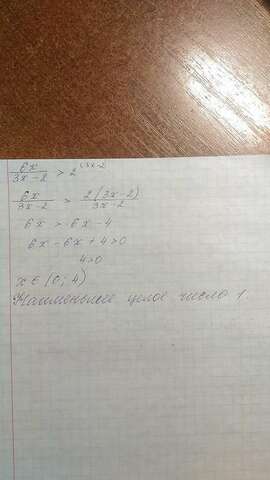 6x/(3x-2) > 2 (3x-2
6x/(3x-2) > 2(3x-2)/(3x-2)
6x > 6x-4
6x-6x+4>0
4>0
x∈(0;4)
Наименьшее целое число 1.